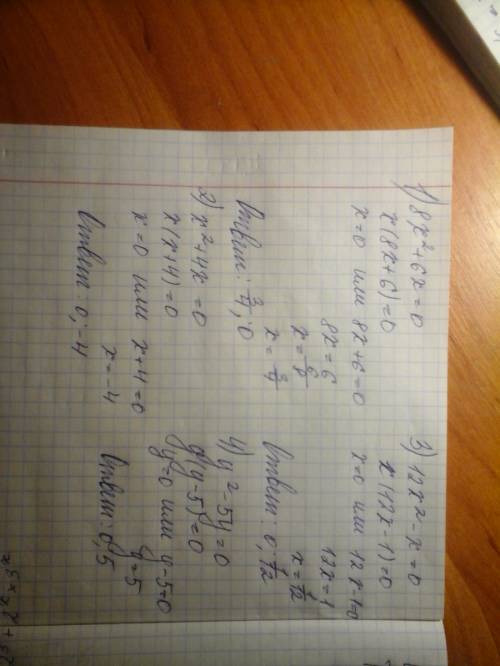 1) 8x²+6x=0
x(8x+6)=0
x=0 или 8x+6=0
8x=6
x=6/8
x=3/4
Ответ: 3/4; 0
2) x²+4x=0
x(x+4)=0
x=0 или x+4=0
x=-4
Ответ: 0; -4
3) 12x²-x=0
x(12x-1)=0
x=0 или 12x-1=0
12x=1
x=1/12
Ответ: 0, 1/12
4) y²-5y=0
y(y-5)=0
y=0 или y-5=0
y=5
Ответ: 0, 5